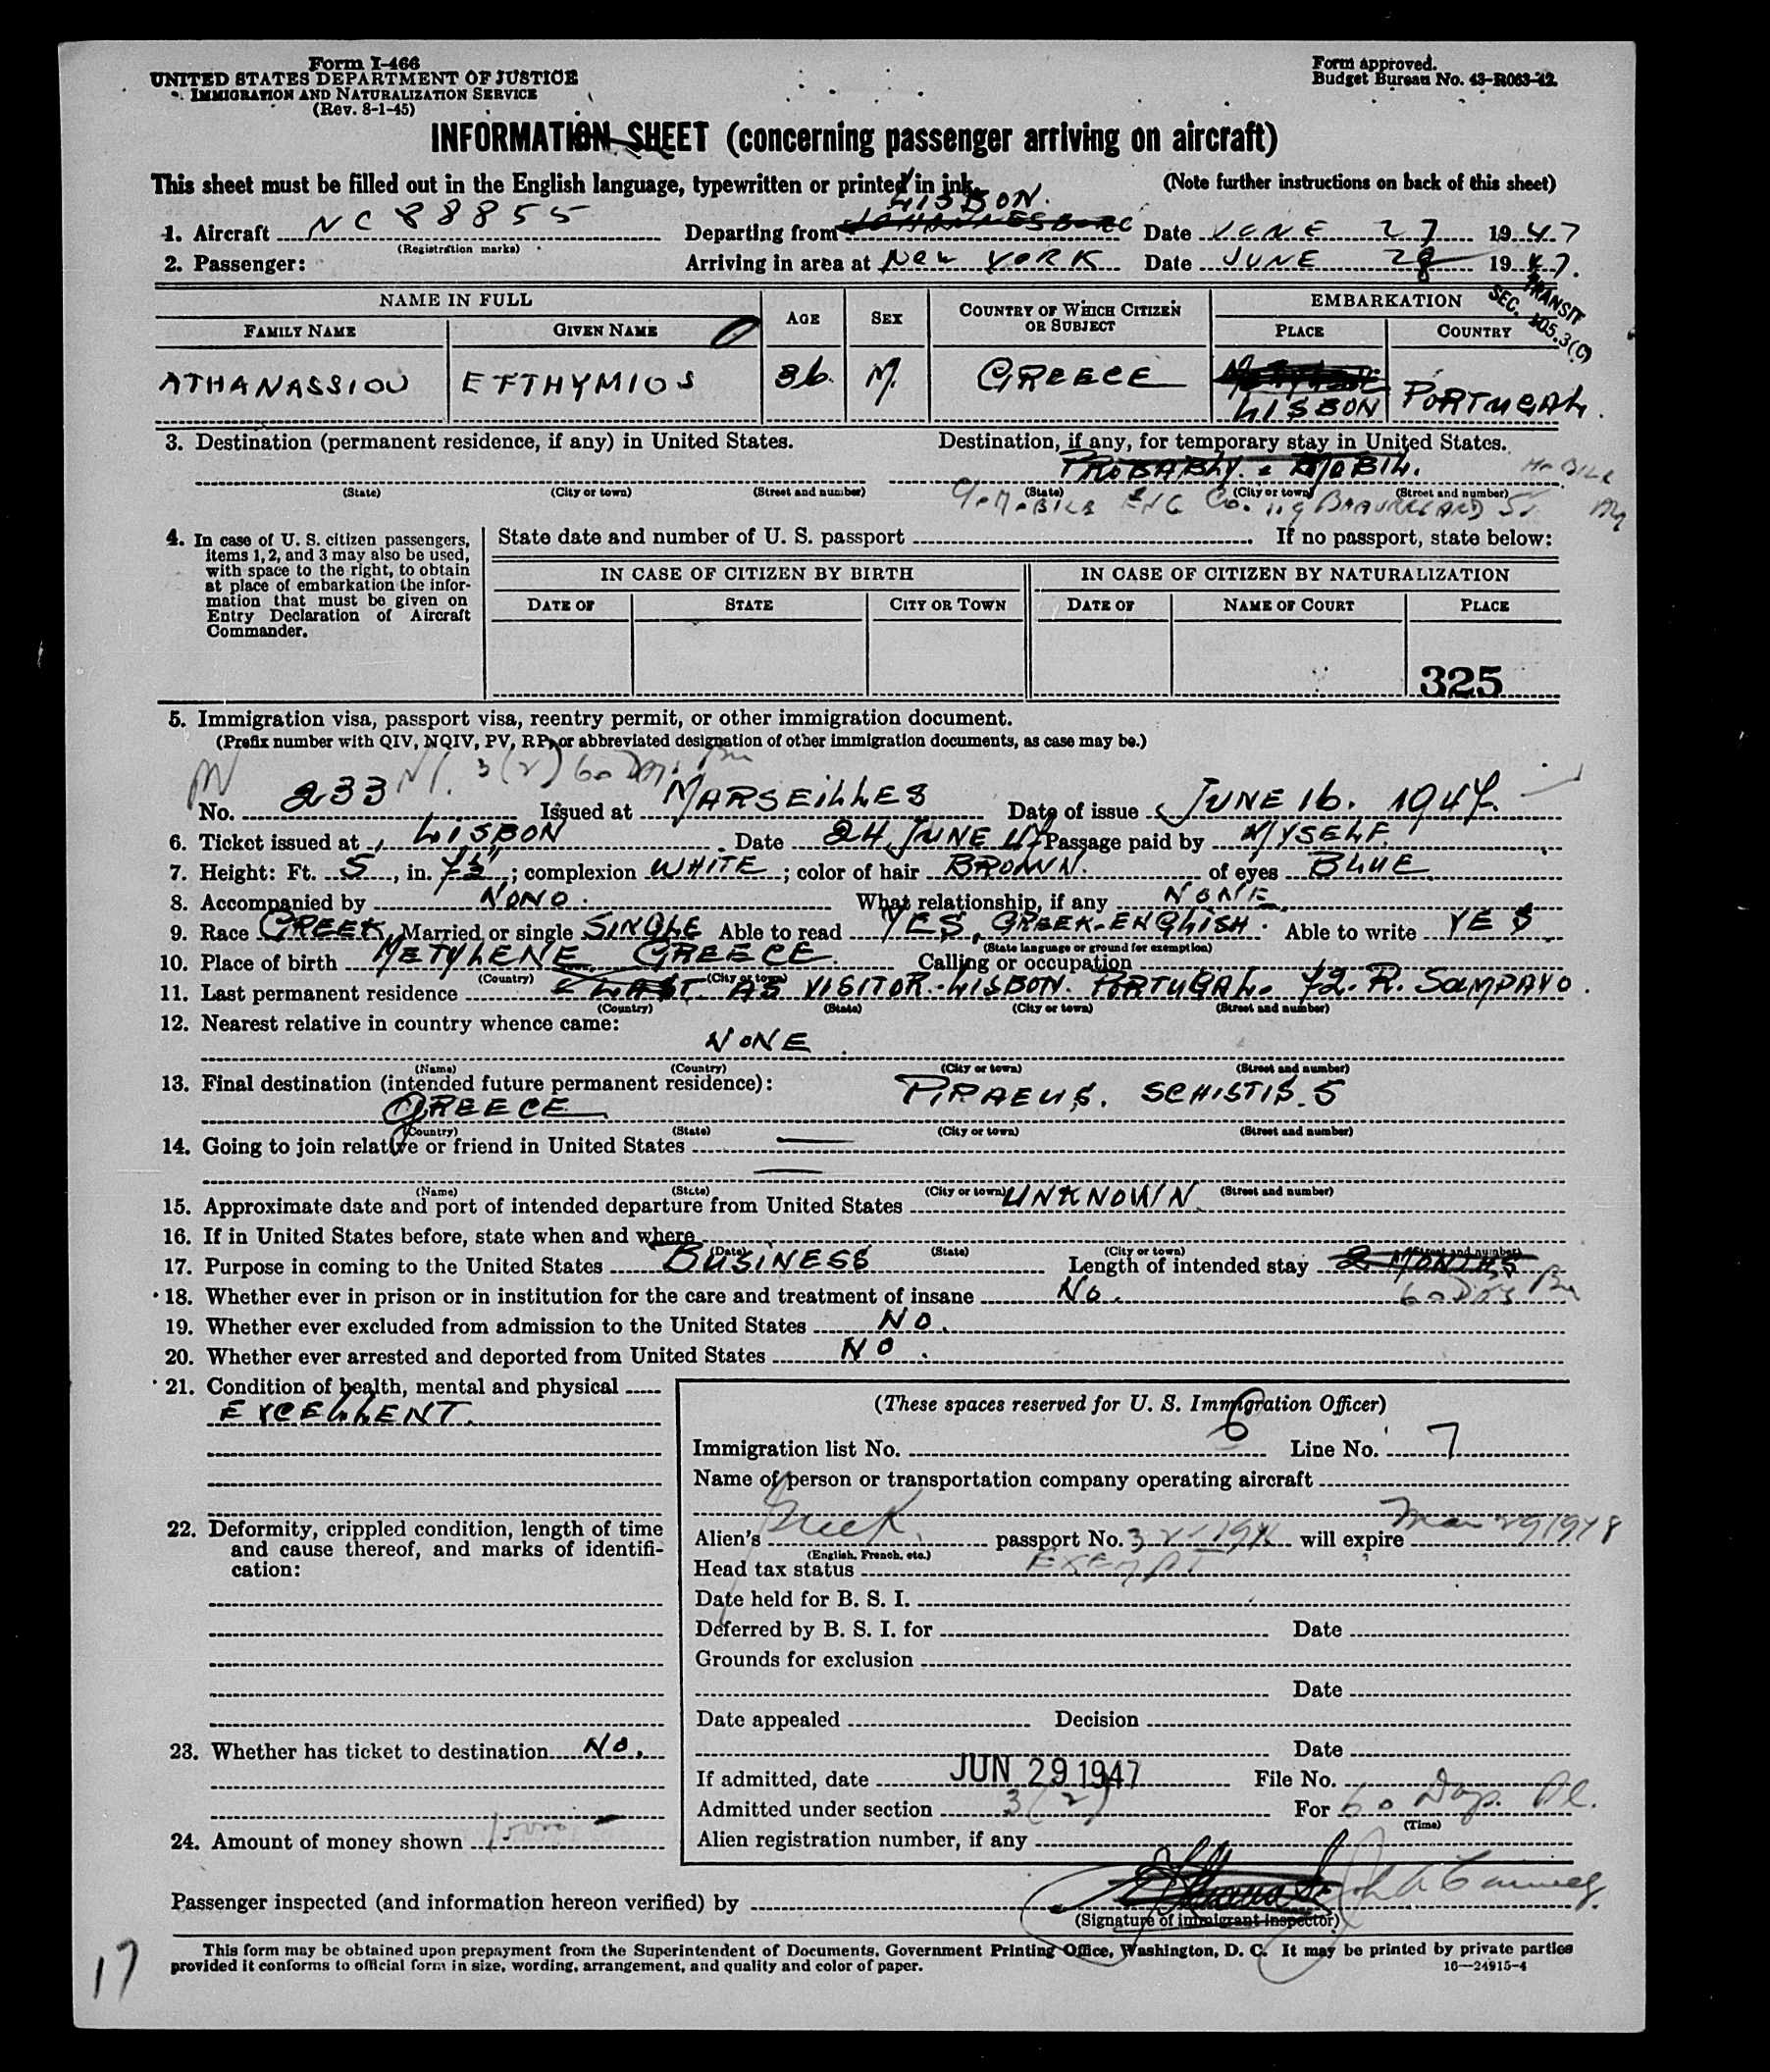 Form I-466
UNITED STATES DEPARTMENT OF JUSTICE
IMMIGRATION AND NATURALIZATION SERVICE
(Rev. 8-1-45)
Form approved.
Budget Bureau No. 43-R063-42.
INFORMATION SHEET (concerning passenger arriving on aircraft)
This sheet must be filled out in the English language, typewritten or printed in ink.
(Note further instructions on back of this sheet)
LISBON.
1. Aircraft NC 88855 Departing from JOHANNESBURG Date JUNE 27 1947
(Registration marks)
2. Passenger: Arriving in area at NEW YORK Date JUNE 28 1947.
TRANSIT
SEC. 105.3(C)
NAME IN FULL AGE SEX COUNTRY OF WHICH CITIZEN OR SUBJECT EMBARKATION
FAMILY NAME GIVEN NAME PLACE COUNTRY
ATHANASSIOU EFTHYMIOS 36. M. GREECE LISBON PORTUGAL.
3. Destination (permanent residence, if any) in United States. Destination, if any, for temporary stay in United States.
PROBABLY MOBIL.
(State) (City or town) (Street and number) (State) (City or town) (Street and number)
4. In case of U. S. citizen passengers, items 1, 2, and 3 may also be used, with space to the right, to obtain at place of embarkation the information that must be given on Entry Declaration of Aircraft Commander.
State date and number of U. S. passport If no passport, state below:
IN CASE OF CITIZEN BY BIRTH IN CASE OF CITIZEN BY NATURALIZATION
DATE OF STATE CITY OR TOWN DATE OF NAME OF COURT PLACE
325
5. Immigration visa, passport visa, reentry permit, or other immigration document.
(Prefix number with QIV, NQIV, PV, RP, or abbreviated designation of other immigration documents, as case may be.)
3(2)
No. 233 Issued at MARSEILLES Date of issue JUNE 16. 1947.
6. Ticket issued at LISBON Date 24 JUNE 47 Passage paid by MYSELF.
7. Height: Ft. 5, in. 7½"; complexion WHITE; color of hair BROWN. of eyes BLUE
8. Accompanied by NONO. What relationship, if any NONE
9. Race GREEK Married or single SINGLE Able to read YES, GREEK-ENGLISH. Able to write YES
(State language or ground for exemption)
10. Place of birth METYLENE GREECE. Calling or occupation
(Country) (City or town)
11. Last permanent residence LAST AS VISITOR. LISBON. PORTUGAL. 72. R. SAMPAYO.
(Country) (State) (City or town) (Street and number)
12. Nearest relative in country whence came:
NONE
(Name) (Country) (City or town) (Street and number)
13. Final destination (intended future permanent residence):
GREECE PIRAEUS. SCHISTIS. 5
(Country) (State) (City or town) (Street and number)
14. Going to join relative or friend in United States
(Name) (State) (City or town) (Street and number)
15. Approximate date and port of intended departure from United States UNKNOWN
16. If in United States before, state when and where
(Date) (State) (City or town) (Street and number)
17. Purpose in coming to the United States BUSINESS Length of intended stay 2 MONTHS
18. Whether ever in prison or in institution for the care and treatment of insane No. 60 Dys
19. Whether ever excluded from admission to the United States NO.
20. Whether ever arrested and deported from United States NO.
21. Condition of health, mental and physical
EXCELLENT.
22. Deformity, crippled condition, length of time and cause thereof, and marks of identification:
23. Whether has ticket to destination No.
24. Amount of money shown
(These spaces reserved for U. S. Immigration Officer)
Immigration list No. 6 Line No. 7
Name of person or transportation company operating aircraft
Alien's Greek passport No. will expire Mar 29 1948
(English, French, etc.)
Head tax status EXEMPT
Date held for B. S. I.
Deferred by B. S. I. for Date
Grounds for exclusion
Date
Date appealed Decision
Date
If admitted, date JUN 29 1947 File No.
Admitted under section 3(2) For 60 Days
(Time)
Alien registration number, if any
Passenger inspected (and information hereon verified) by
(Signature of immigrant inspector)
This form may be obtained upon prepayment from the Superintendent of Documents, Government Printing Office, Washington, D. C. It may be printed by private parties
provided it conforms to official form in size, wording, arrangement, and quality and color of paper.
16—24915-4
17